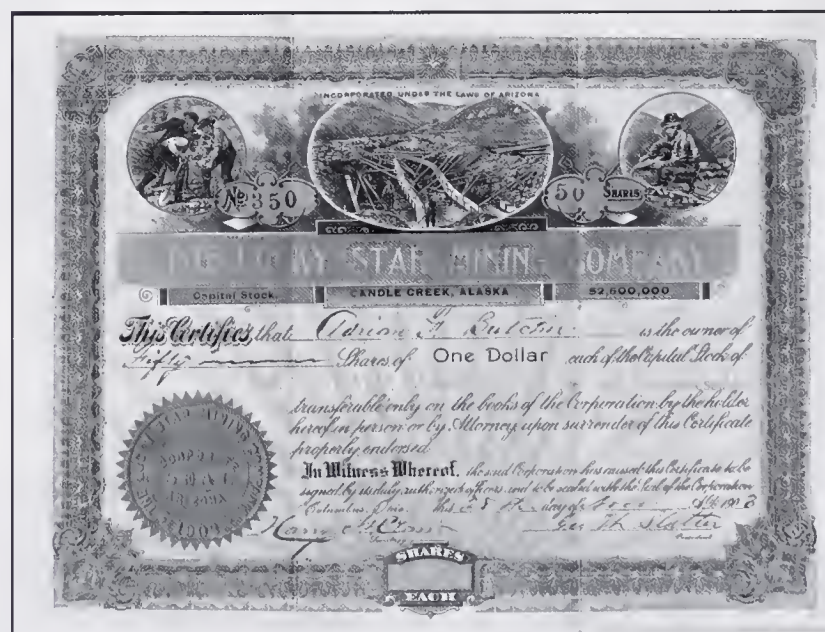 INCORPORATED UNDER THE LAWS OF ARIZONA
No. 350
50 SHARES
STAR MINING COMPANY
Capital Stock.
CANDLE CREEK, ALASKA
$2,600,000
This Certifies, that Adrian F. is the owner of
Fifty Shares of One Dollar each of the Capital Stock of
transferable only on the books of the Corporation by the holder
hereof in person or by Attorney upon surrender of this Certificate
properly endorsed.
In Witness Whereof, the said Corporation has caused this Certificate to be
signed by its duly authorized officers and to be sealed with the Seal of the Corporation
Columbus, Ohio. this day of A.D. 190
Secretary
President
STAR MINING
ARIZONA
SHARES
EACH